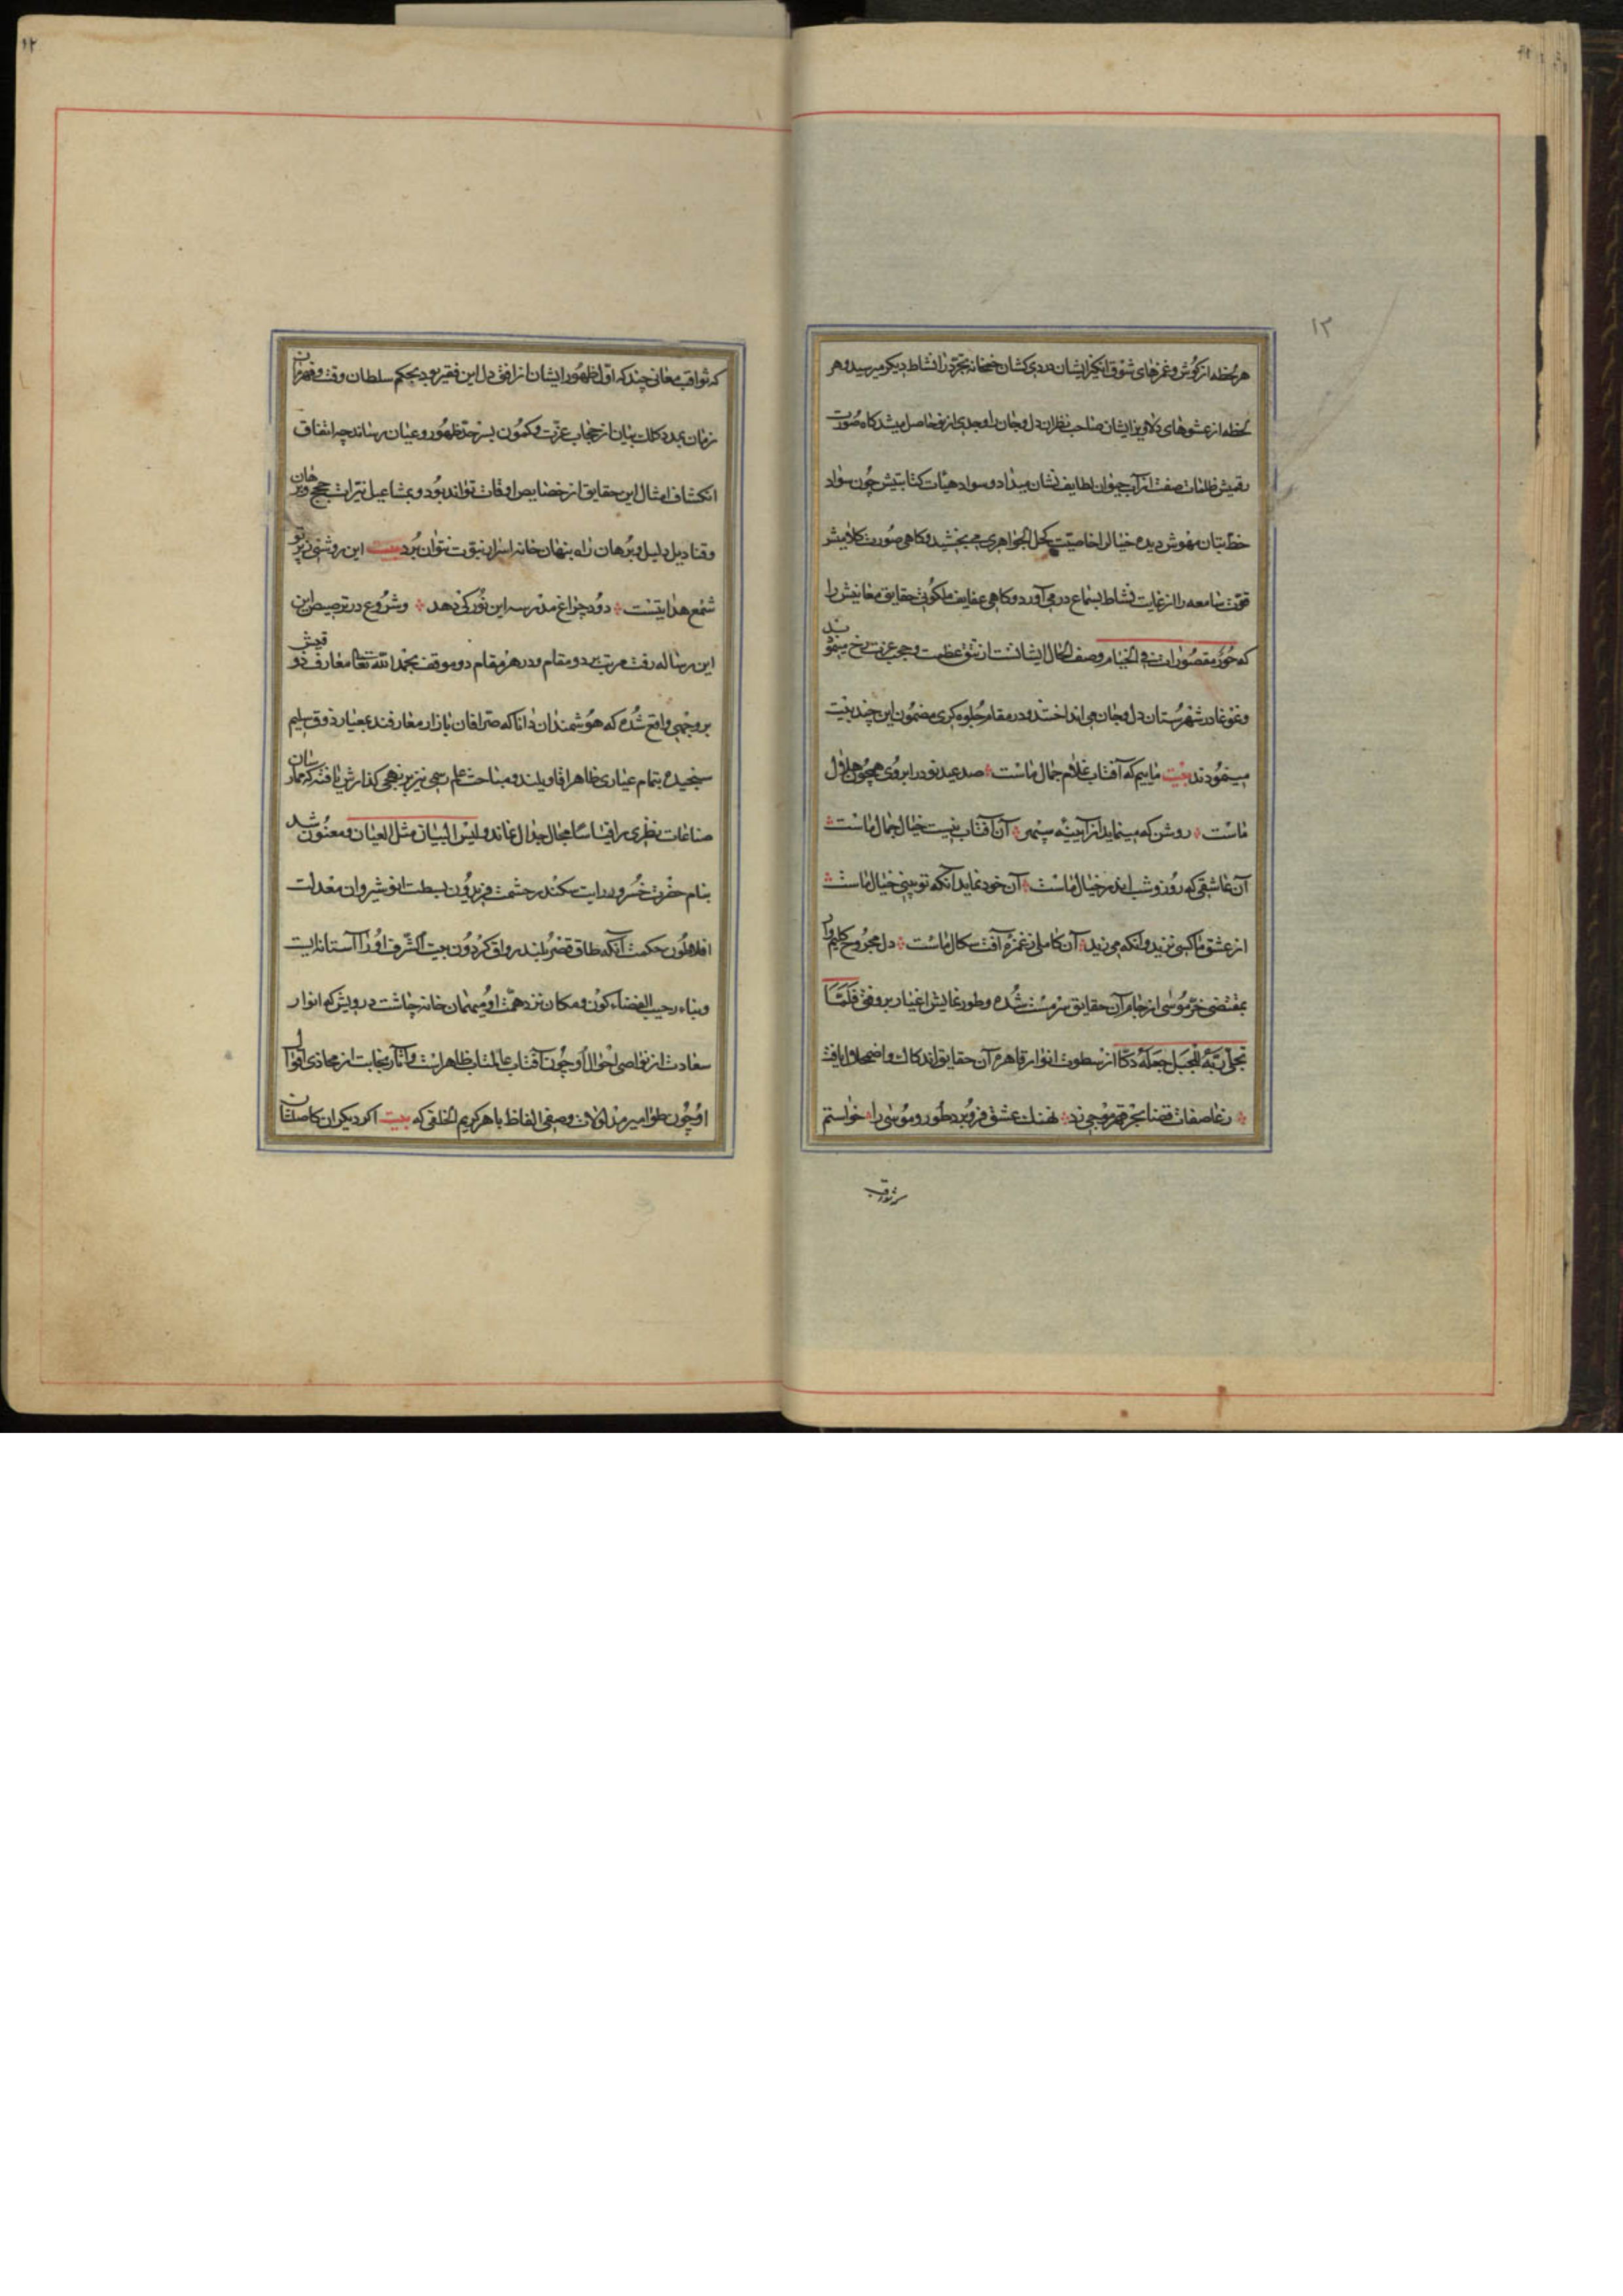 ١٢
هر لحظه از کوش و غمزهای شوق انکیز ایشان دردی کشان خمخانه تجرّد را نشاط دیکر میرسید و هر
لحظه از عشوهای دلاویز ایشان صاحب نظران دل و جان را وجدی از نو حاصل میشد کاه صورت
رقمیش ظلمات صفت از آب حیوان لطایف نشان میداد و سواد هیات کتابتیش چون سواد
خط بتان مهوش دیده خیال را خاصیّت کحل الجواهری می بخشید و کاهی صورت کلامیش
قوّت سامعه را از غایت نشاط بسماع در می آورد و کاهی عفایف ملکوتی حقایق معانیش را
که حُورٌ مقصُورات فی الخیام وصف الحال ایشانست از تتق عظمت و حجب عزت رخ مینمودند
و غوغا در شهرستان دل و جان می انداختند و در مقام جلوه کری مضمون این چند بیت
مینمودند بیت ماییم که آفتاب غلام جمال ماست صد عید نو در ابروی همچون هلال
ماست روشن که مینماید از آیینه سپهر آن آفتاب نیست خیال جمال ماست
آن عاشقی که روز و شب اندر خیال ماست آن خود نماید آنکه تو بینی خیال ماست
از عشق ما کسی نزید و آنکه می زید آن کاملی ز غمزه آفت سکال ماست دل مجروح کلیم وار
بمقتضی خرّ موسی از جام آن حقایق سرمست شده و طور نمایش اغیار بر وفق فَلَمّا
تجلّی ربّه للجبل جعله دکّا از سطوت انوار قاهره آن حقایق اندکاک و اضمحلال یافت
ز عاصفات قضا بحر قهر موجی زد نهنک عشق فرو برد طور و موسی را خواستم
١٢
که ثواقب معانی چند که اوّل ظهور ایشان از افق دل این فقیر بود بحکم سلطان وقت و قهرمان
زمان بمدد کلک بیان از حجاب عزّت و کمون بسرحدّ ظهور و عیان رساند چه اتفاق
انکشاف امثال این حقایق از خصایص اوقات تواند بود و بمشاعیل نیّرات حجج و برهان
و قنادیل دلیل و برهان راه بنهان خانه اسرار نبوّت نتوان برد بیت این روشنی ز پرتو
شمع هدایتست دود چراغ مدرسه این نور کی دهد و شروع در ترصیص این
این رساله رفت مرتب بر دو مقام و در هر مقام دو موقف بحمد الله تعالی معارف ذوقیش
بر وجهی واقع شده که هوشمندان دانا که صرّافان بازار معارفند بمعیار ذوق سلیم
سنجیده بتمام عیاری ظاهرا قاویلند و مباحث علم رسمی نیز بر نهجی کذارش یافته که ممارسان
صناعات نظری را قیاسا مجال جدال نماند ولیس البیان مثل العیان و معنون شد
بنام حضرت خسرو رایت سکندر حشمت فریدون بسطت انوشیروان معدلت
افلاطون حکمت آنکه طاق قصر بلند رواق کردون بیت الشّرف او را آستانه ایست
و بناء رحیب الفضاء کون و مکان نزد همّت او میهمان خانه چاشت درویش که انوار
سعادت از نواصی احوال او چون آفتاب عالمتاب ظاهر است و آثار نجابت از محاذی اقوال
او چون طوامیر مدلولات و صفی الفاظ باهر کریم الخلقی که بیت اکر دیکران کاصلشان